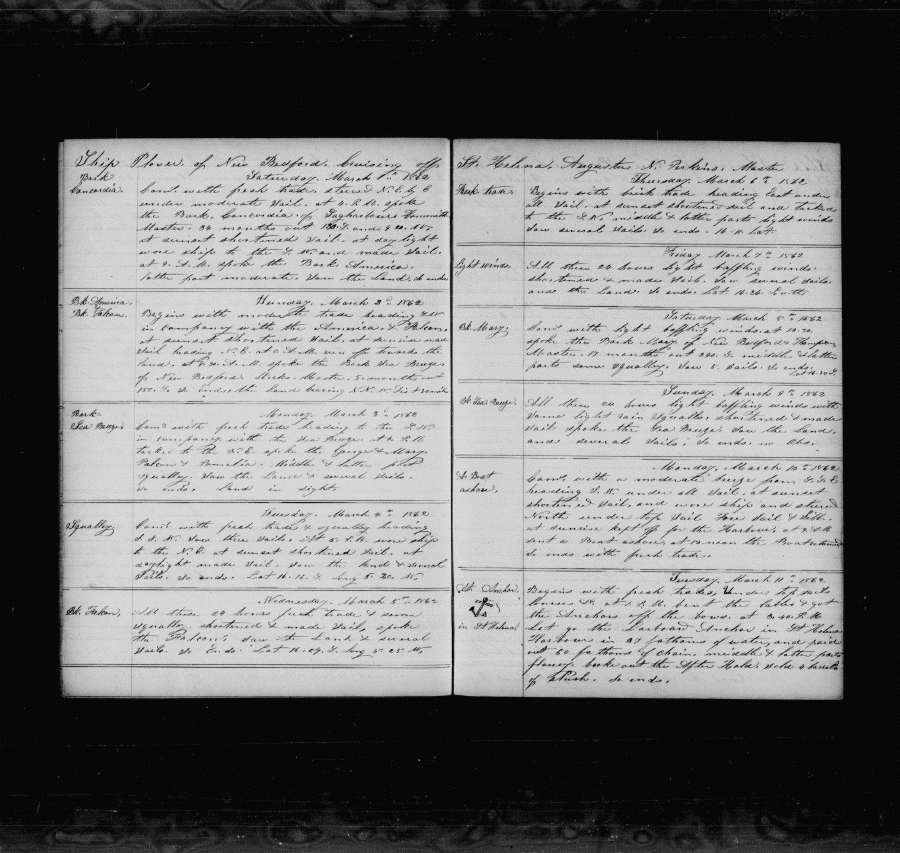 Ship Plover of New Bedford. Cruising off
Bark
Concordia.
Saturday, March 1st 1862
Com'd with fresh trade, stered N.E. by E
under moderate Sail. at 4. P.M. spoke
the Bark, Concordia of Sagharbour
Master. 34 months out and 4 20. M's
at sunset shortened Sail. at daylight
wore ship to the S.W. and made Sail.
at 9. A.M. spoke the Bark America
latter part moderate. Saw the Land. So ends
Bk. America.
Bk. Falcon.
Sunday, March 2nd 1862
Begins with moderate trade heading
in company with the America & Falcon,
at sunset shortened Sail. at sunrise made
Sail heading N.E. at A.M. run off towards the
land, at A.M. spoke the Bark Sea Breeze.
of New Bedford. Master. 5 months out
So Ends. the Land bearing
Bark
Sea Breeze.
Monday, March 3rd 1862
Com'd with fresh trade heading to the S.W.
in company with the Sea Breeze. at P.M.
tacked to the N.E. spoke the George & Mary.
Falcon & Pamelia. Middle & latter part
squally. Saw the Land & several Sails.
So ends. Land in sight.
Squally.
Tuesday, March 4th 1862
Com'd with fresh trade & squally heading
S.S.W. Saw three Sails. At 5. P.M. wore ship
to the N.E. at sunset shortened Sail. at
daylight made Sail. Saw the land & several
Sails. So ends. Lat 16-15. S. Long 5-20. W.
Bk. Falcon.
Wednesday, March 5th 1862
All these 24 hours fresh trade & some
squally. shortened & made Sail. spoke
the Falcon. Saw the Land & several
Sails. So Ends. Lat 16-09. S. Long 5-25 W.
St. Helena. Augustus N. Perkins. Master
Thursday, March 6th 1862
Brisk trade.
Begins with brisk trade heading East under
all Sail. at sunset shortened Sail and tacked
to the S.W. middle & latter parts light winds
Saw several Sails. So ends. 16-11 Lat
Light winds.
Friday March 7th 1862
All these 24 hours light baffling winds
shortened & made Sail. Saw several Sails
and the Land. So ends. Lat. 16-26 South
Bk Mary.
Saturday, March 8th 1862
Com'd with light baffling winds. at 12.30.
spoke the Bark Mary of New Bedford.
Master. 17 months out 240. S. middle & latter
parts some squally. Saw 5. Sails. So ends.
Lat 16-30 S.
Bk Sea Breeze.
Sunday, March 9th 1862
All these 24 hours light baffling winds with
some light rain squalls. shortened & made
Sail spoke the Sea Breeze. Saw the Land.
and several Sails. So ends. no Obs.
A. Boat
ashore.
Monday, March 10th 1862
Com'd with a moderate breeze from S.S.E
heading S.W. under all Sail. at sunset
shortened Sail, and wore ship and stered
North under Top Sail Fore Sail & Jibb.
at sunrise kept off for the Harbour. at A.M
sent a Boat ashore, at 12. noon the Boat returned
So ends with fresh trade.
At Anchor
in St Helena
Tuesday, March 11th 1862
Begins with fresh trade, Under top sails
P.M. bent the cables & got
the Anchors off the bows. at 3.40. P.M.
Let go the Larboard Anchor in St Helena
Harbour in 27 fathoms of water, and paid
out 60 fathoms of chain. middle & latter parts
broke out the After Hole. 4
of Whisk. So ends.